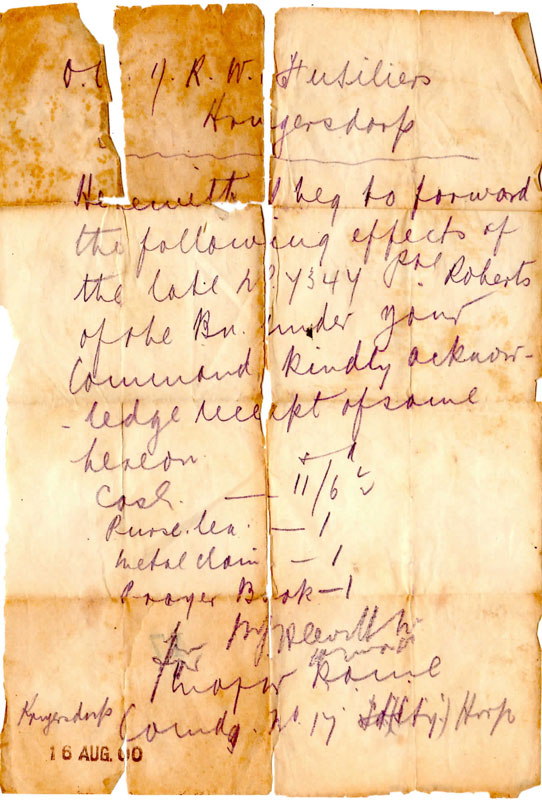 O.C. Y. R. W. Fusiliers
Krugersdorp
Herewith I beg to forward
the following effects of
the late No. 7344 Pte. Roberts
of the Bn. under your
Command kindly acknow-
-ledge receipt of same
hereon.
s d
Cash. — 11/6
Purse. lea. — 1
Metal chain — 1
Prayer Book — 1
for
Major
Krugersdorp Comdg. No 17 Hosp
16 AUG. 00